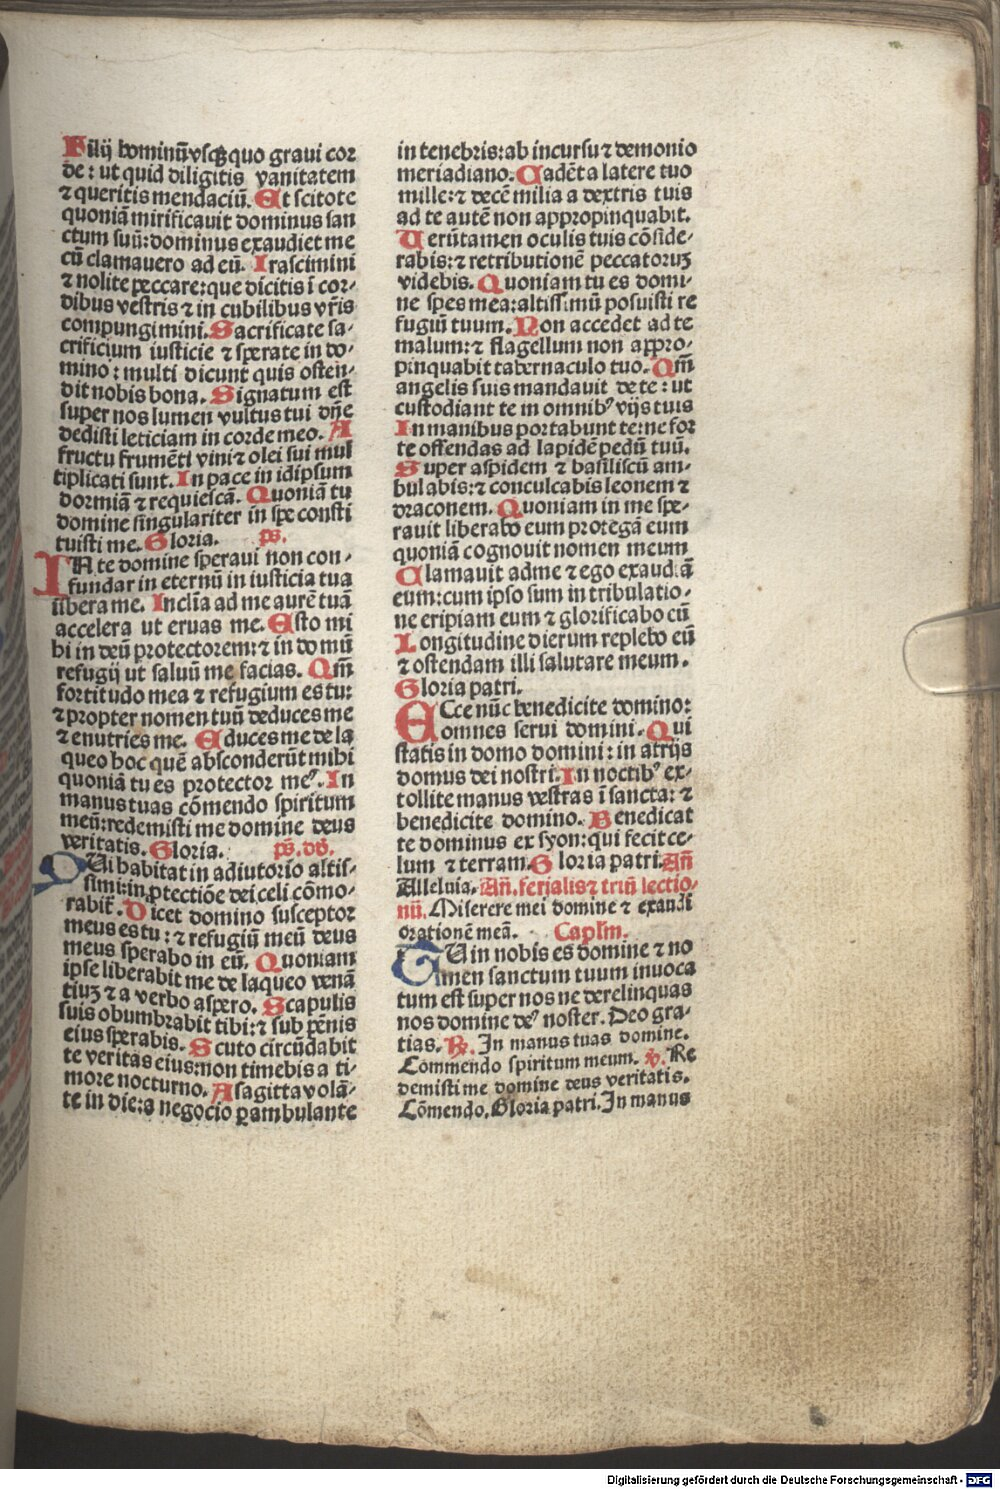 Filij hominũ vsqꝫ quo graui cor
de: ut quid diligitis vanitatem
⁊ queritis mendaciũ. Et scitote
quoniã mirificauit dominus san
ctum suũ: dominus exaudiet me
cũ clamauero ad eũ. Irascimini
⁊ nolite peccare: que dicitis ĩ cor-
dibus vestris ⁊ in cubilibus vr̃is
compungimini. Sacrificate sa-
crificium iusticie ⁊ sperate in do-
mino: multi dicunt quis osten-
dit nobis bona. Signatum est
super nos lumen vultus tui dñe
dedisti leticiam in corde meo. A
fructu frumẽti vini ⁊ olei sui mul
tiplicati sunt. In pace in idipsum
dormiã ⁊ requiescã. Quoniã tu
domine singulariter in spe consti
tuisti me. Gloria. ps.
IN te domine speraui non con-
fundar in eternũ in iusticia tua
libera me. Inclĩa ad me aurẽ tuã
accelera ut eruas me. Esto mi
hi in deũ protectorem: ⁊ in domũ
refugij ut saluũ me facias. Qm̃
fortitudo mea ⁊ refugium es tu:
⁊ propter nomen tuũ deduces me
⁊ enutries me. Educes me de la
queo hoc quẽ absconderũt mihi
quoniã tu es protector meꝰ. In
manus tuas cõmendo spiritum
meũ: redemisti me domine deus
veritatis. Gloria. ps. dd.
QUi habitat in adiutorio altis-
simi: in ꝓtectiõe dei celi cõmo-
rabit̃. Dicet domino susceptor
meus es tu: ⁊ refugiũ meũ deus
meus sperabo in eũ. Quoniam
ipse liberabit me de laqueo venã
tiuꝫ ⁊ a verbo aspero. Scapulis
suis obumbrabit tibi: ⁊ sub pẽnis
eius sperabis. Scuto circũdabit
te veritas eius: non timebis a ti-
more nocturno. A sagitta volã-
te in die: a negocio ꝑambulante
in tenebris: ab incursu ⁊ demonio
meriadiano. Cadẽt a latere tuo
mille: ⁊ decẽ milia a dextris tuis
ad te autẽ non appropinquabit.
Uerũtamen oculis tuis cõside-
rabis: ⁊ retributionẽ peccatoruꝫ
videbis. Quoniam tu es domi-
ne spes mea: altissimũ posuisti re
fugiũ tuum. Non accedet ad te
malum: ⁊ flagellum non appro-
pinquabit tabernaculo tuo. Qm̃
angelis suis mandauit de te: ut
custodiant te in omnibꝰ vijs tuis
In manibus portabunt te: ne for
te offendas ad lapidẽ pedũ tuũ.
Super aspidem ⁊ basiliscũ am-
bulabis: ⁊ conculcabis leonem ⁊
draconem. Quoniam in me spe-
rauit liberabo eum protegã eum
quoniã cognouit nomen meum
Clamauit ad me ⁊ ego exaudiã
eum: cum ipso sum in tribulatio-
ne eripiam eum ⁊ glorificabo eũ
Longitudine dierum replebo eũ
⁊ ostendam illi salutare meum.
Gloria patri.
ECce nũc benedicite domino:
omnes serui domini. Qui
statis in domo domini: in atrijs
domus dei nostri. In noctibꝰ ex-
tollite manus vestras ĩ sancta: ⁊
benedicite domino. Benedicat
te dominus ex syon: qui fecit ce-
lum ⁊ terram. Gloria patri. Añ
Alleluia. Añ. ferialis ⁊ triũ lectio-
nũ. Miserere mei domine ⁊ exaudi
orationẽ meã. Caplm̃.
TU in nobis es domine ⁊ no
men sanctum tuum inuoca
tum est super nos ne derelinquas
nos domine deꝰ noster. Deo gra-
tias. ℟. In manus tuas domine.
Commendo spiritum meum. ℣. Re
demisti me domine deus veritatis.
Cõmendo. Gloria patri. In manus
Digitalisierung gefördert durch die Deutsche Forschungsgemeinschaft - DFG